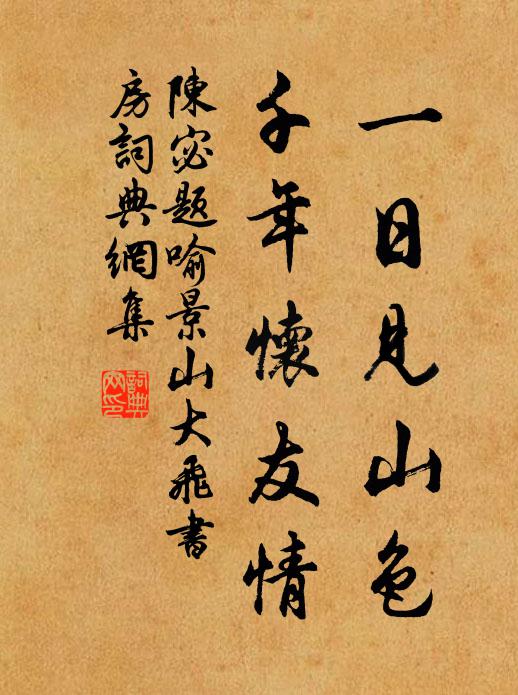 一日見山色
千年懷友情
陳宓題喻景山大飛書
房詞典網集
詞典網印